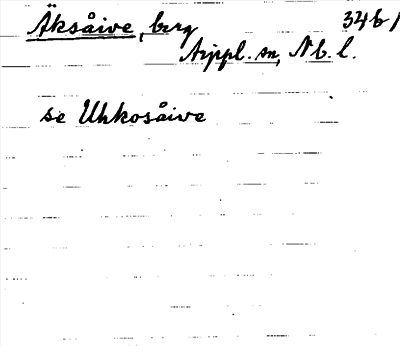 Äksåive, berg 34b1
Arjepl. sn, Nb. l.
se Uhkosåive